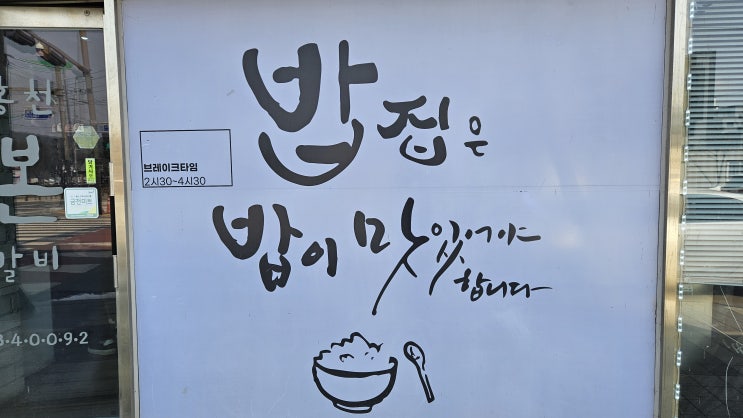 밥집은
브레이크타임
2시30~4시30
밥이 맛있어야
합니다
홍천
본
갈비
금천미트
4·0·0·9·2